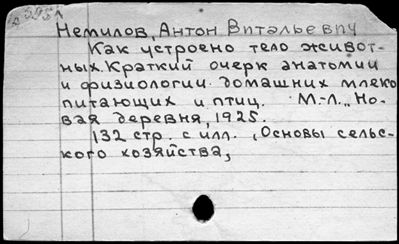 Немилов, Антон Витальевич
Как устроено тело живот-
ных. Краткий очерк анатомии
и физиологии домашних млеко
питающих и птиц. М.-Л., "Но-
вая деревня, 1925.
132 стр. с илл. (Основы сельс-
кого хозяйства,